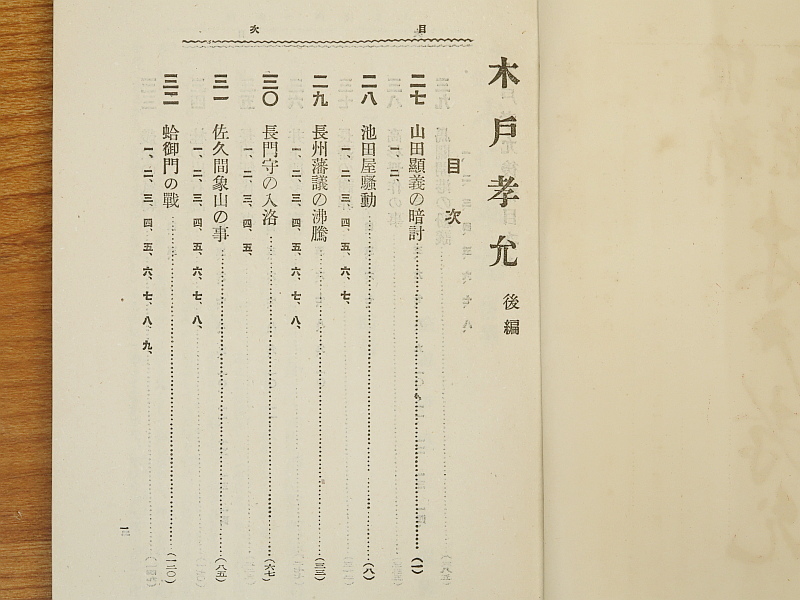 目次
木戶孝允 後編
目次
二七 山田顯義の暗討……(一)
一、二、
二八 池田屋騷動……(八)
一、二、三、四、五、六、七、
二九 長州藩議の沸騰……(三三)
一、二、三、四、五、六、七、八、
三〇 長門守の入洛……(六七)
一、二、三、四、五、
三一 佐久間象山の事……(八五)
一、二、三、四、五、六、七、八、
三二 蛤御門の戰……(一二〇)
一、二、三、四、五、六、七、八、九、
一